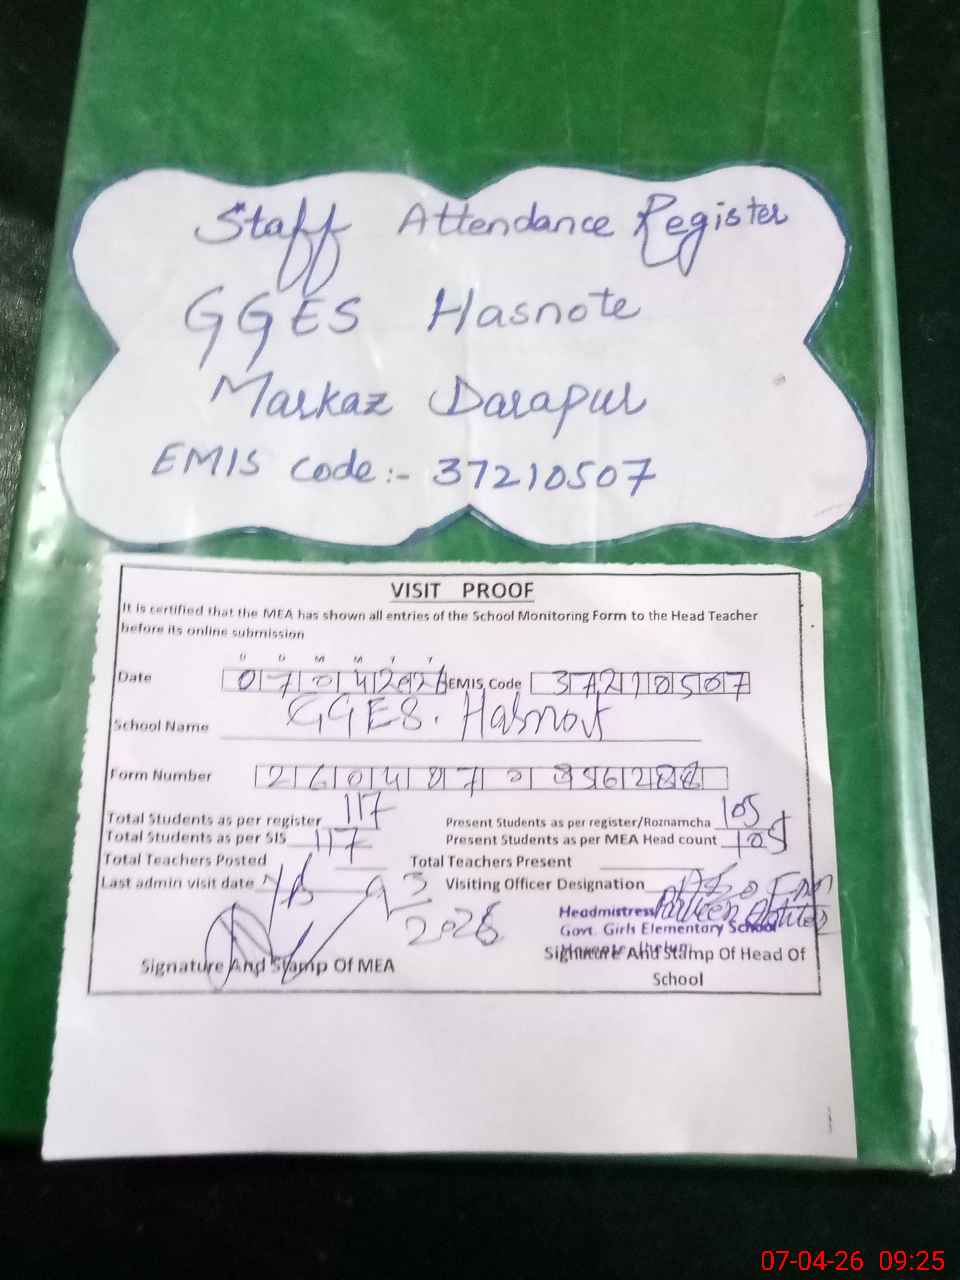 Staff Attendance Register
GGES Hasnote
Markaz Darapur
EMIS Code:- 37210507
VISIT PROOF
It is certified that the MEA has shown all entries of the School Monitoring Form to the Head Teacher
before its online submission
D D M M Y Y
Date 07042026 EMIS Code 37210507
School Name GGES. Hasnot
Form Number
Total Students as per register 117 Present Students as per register/Roznamcha 105
Total Students as per SIS 117 Present Students as per MEA Head count 105
Total Teachers Posted Total Teachers Present
Last admin visit date Visiting Officer Designation
2026
Headmistress
Govt. Girls Elementary School
Signature And Stamp Of MEA Signature And Stamp Of Head Of
School
07-04-26 09:25